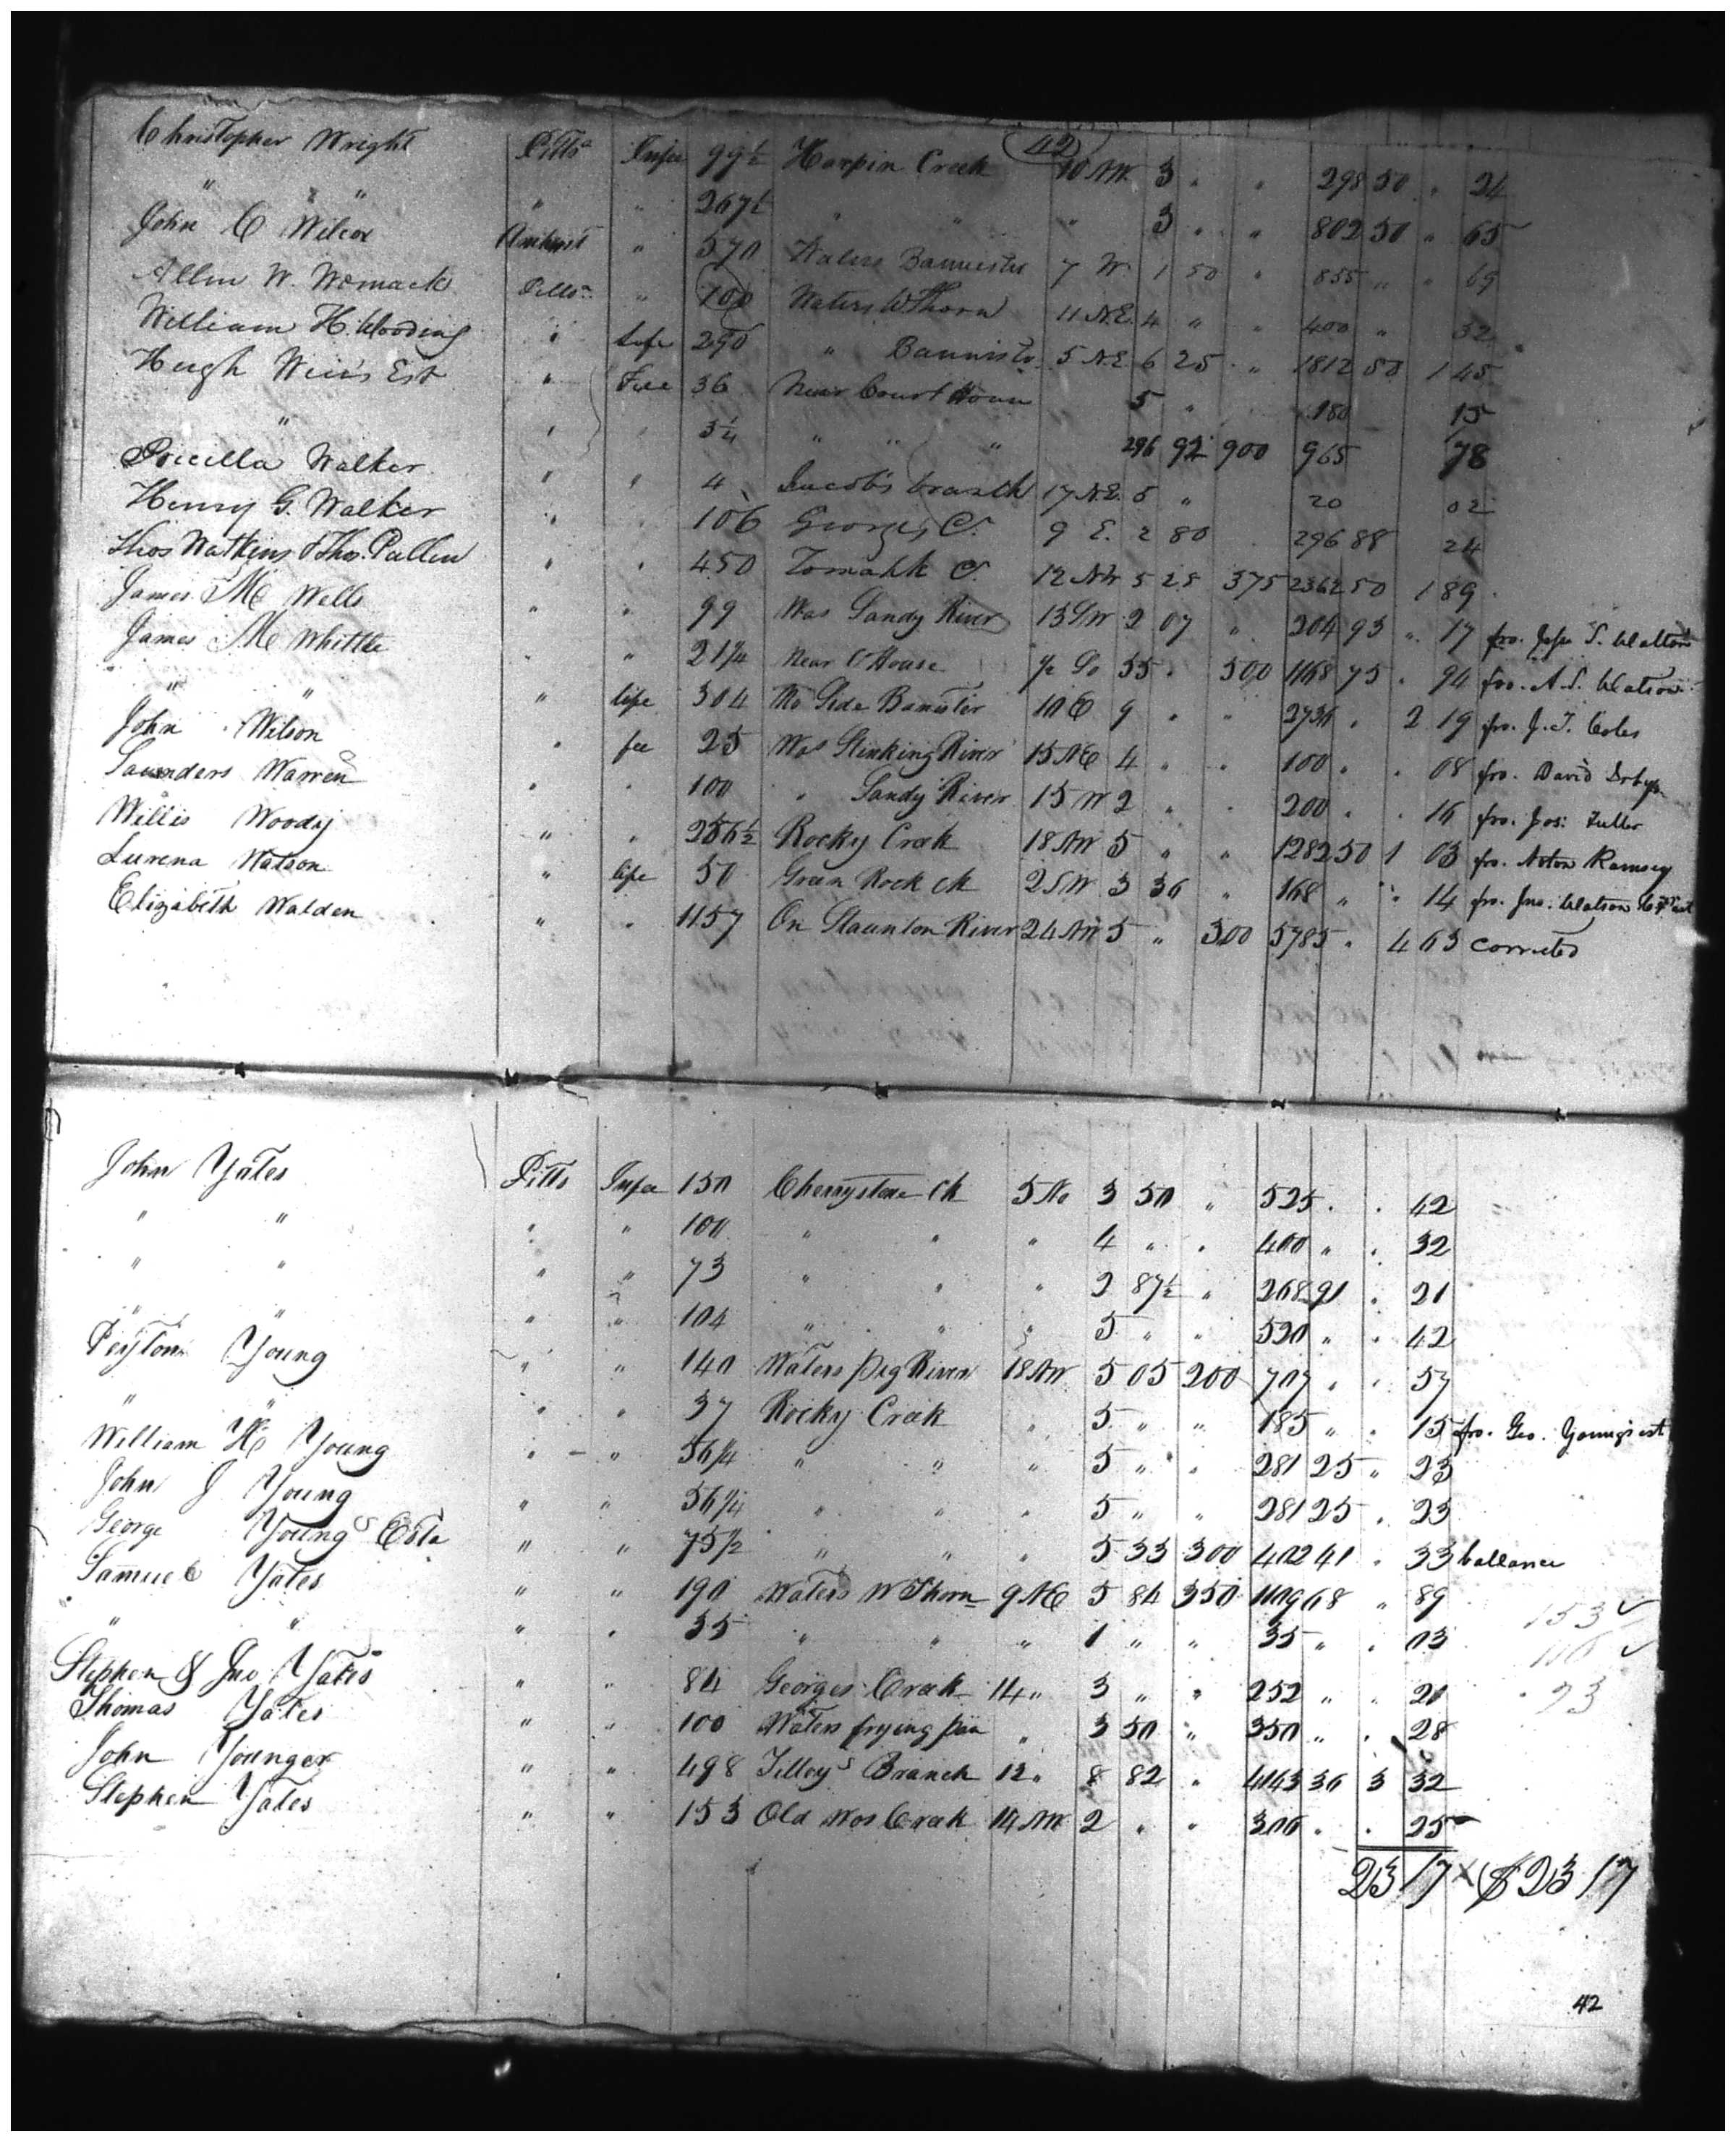 42
Christopher Wright Pitts^a Infee 99½ Harpin Creek 10 NW 3 " " 298 50 " 24
" " " " " 267½ " " " 3 " " 802 50 " 65
John C Wilcox Amherst " 570 Waters Bannister 7 W 1 50 " 855 " " 69
Allen W. Womack Pitts^a " 100 Waters W Thorn 11 N.E. 4 " " 400 " 32
William H. Wooding " Life 290 " Bannister 5 N.E 6 25 " 1812 50 1 45
Hugh Weir's Est " Fee 36 Near Court House 5 " 180 15
" " " 3¼ " " " 296 92 900 965 78
Pricilla Walker " " 4 Jacobs branch 17 N.E. 5 " 20 02
Henry G. Walker " " 106 Georges C. 9 E. 2 80 296 88 24
Thos Watkins & Tho. Pullen " " 450 Tomahk C. 12 NW 5 25 375 2362 50 1 89
James M Wells " " 99 Was Sandy River 13 SW 2 07 " 204 93 " 17 fro. S. Walton
James M Whittle " " 21¼ Near C House ½ So 55 " 500 1168 75 " 94 fro. A. S. Watson
" " " life 304 No Side Banister 10 E 9 " " 2736 " 2 19 fro. J. T. Coles
John Wilson " fee 25 Was Stinking River 15 NE 4 " " 100 " " 08 fro. David
Saunders Warren " " 100 " Sandy River 15 W 2 " " 200 " " 16 fro. Jos: Fuller
Willis Woody " " 256½ Rocky Creek 18 NW 5 " " 1282 50 1 03 fro. Noton Ramsey
Lurena Watson " life 50 Green Rock ck 2 SW 3 36 " 168 " " 14 fro. Jno. Watson
Elizabeth Walden " " 1157 On Staunton River 24 NW 5 " 300 5785 " 4 63 corrected
John Yates Pitts Infee 150 Cherrystone Ck 5 No 3 50 " 525 " " 42
" " " " 100 " " " 4 " " 400 " " 32
" " " " 73 " " " 2 87½ " 268 91 " 21
" " " " 104 " " " 5 " " 520 " " 42
Peyton Young " " 140 Waters Pig River 18 NW 5 05 200 707 " " 57
" " " " 37 Rocky Creek " 5 " " 185 " " 15 fro. Geo. Young's est
William H Young " " 56¼ " " " 5 " " 281 25 " 23
John J Young " " 56¼ " " " 5 " " 281 25 " 23
George Young^s Esta " " 75½ " " " 5 33 300 402 41 " 33 ballance
Samuel Yates " " 190 Waters W Thorn 9 NE 5 84 350 1109 68 " 89
" " " " 35 " " " 1 " " 35 " " 03 153 ✓
Stephen & Jno Yates " " 84 Georges Creek 14 " 3 " " 252 " " 20 23
Thomas Yates " " 100 Waters frying pan " 3 50 " 350 " " 28
John Younger " " 498 Tilley^s Branch 12 " 8 82 " 4143 36 3 32
Stephen Yates " " 153 Old Wos Creek 14 NW 2 " " 306 " " 25
23 17 × $23 17
42